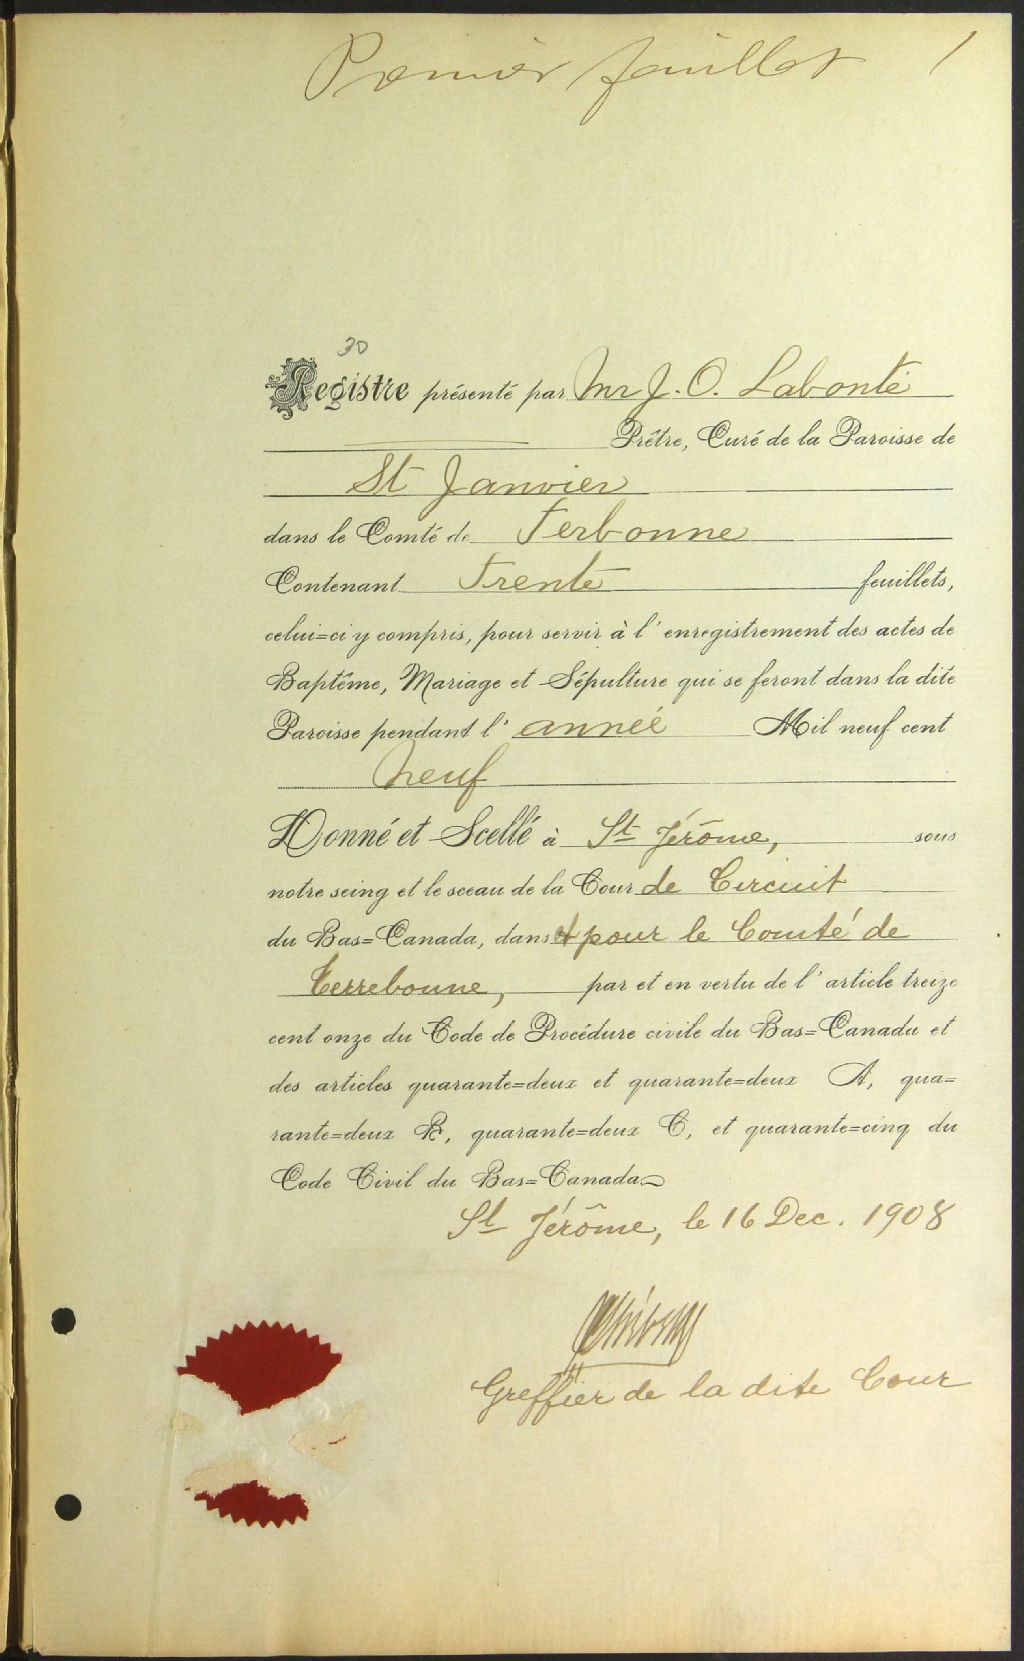 Premier feuillet 1
30
Registre présenté par Mr J. O. Labonté
Prêtre, Curé de la Paroisse de
St Janvier
dans le Comté de Terbonne
Contenant Trente feuillets,
celui=ci y compris, pour servir à l'enregistrement des actes de
Baptême, Mariage et Sépulture qui se feront dans la dite
Paroisse pendant l'année Mil neuf cent
neuf
Donné et Scellé à St Jérôme, sous
notre seing et le sceau de la Cour de Circuit
du Bas=Canada, dans & pour le Comté de
Terrebonne, par et en vertu de l'article treize
cent onze du Code de Procédure civile du Bas=Canada et
des articles quarante=deux et quarante=deux A, qua=
rante=deux B, quarante=deux C, et quarante=cinq du
Code Civil du Bas=Canada
St Jérôme, le 16 Dec. 1908
Greffier de la dite Cour